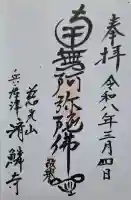 奉拝
令和八年三月四日
南無阿弥陀佛
慈光山
兵庫津 済鱗寺